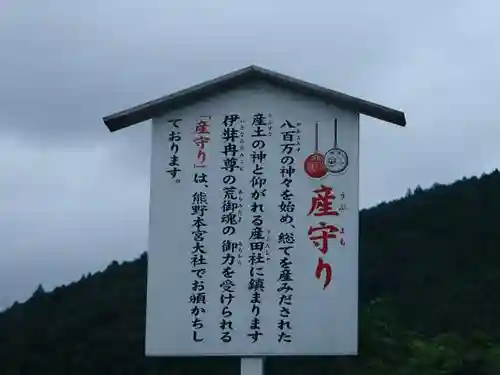 産守り
八百万の神々を始め、総てを産みだされた
産土の神と仰がれる産田社に鎮まります
伊弉冉尊の荒御魂の御力を受けられる
「産守り」は、熊野本宮大社でお頒かちし
ております。